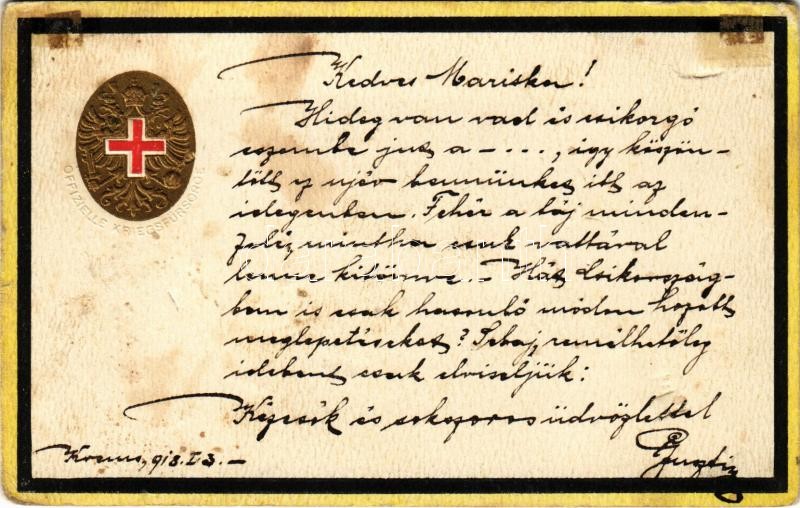 OFFIZIELLE KRIEGSFÜRSORGE
Kedves Mariska!
Hideg van vad és csikorgó
eszembe jut a – . . . , így köszön-
tött az ujév bennünket itt az
idegenben. Fehér a táj minden-
felé, mintha csak vattával
lenne kitömve. – Hát Csikország-
ban is csak hasonló módon hozott
meglepetéseket? Sebaj, remélhetőleg
idebent csak elviseljük!
Kézcsók és sokszoros üdvözlettel
918. I. 3. –